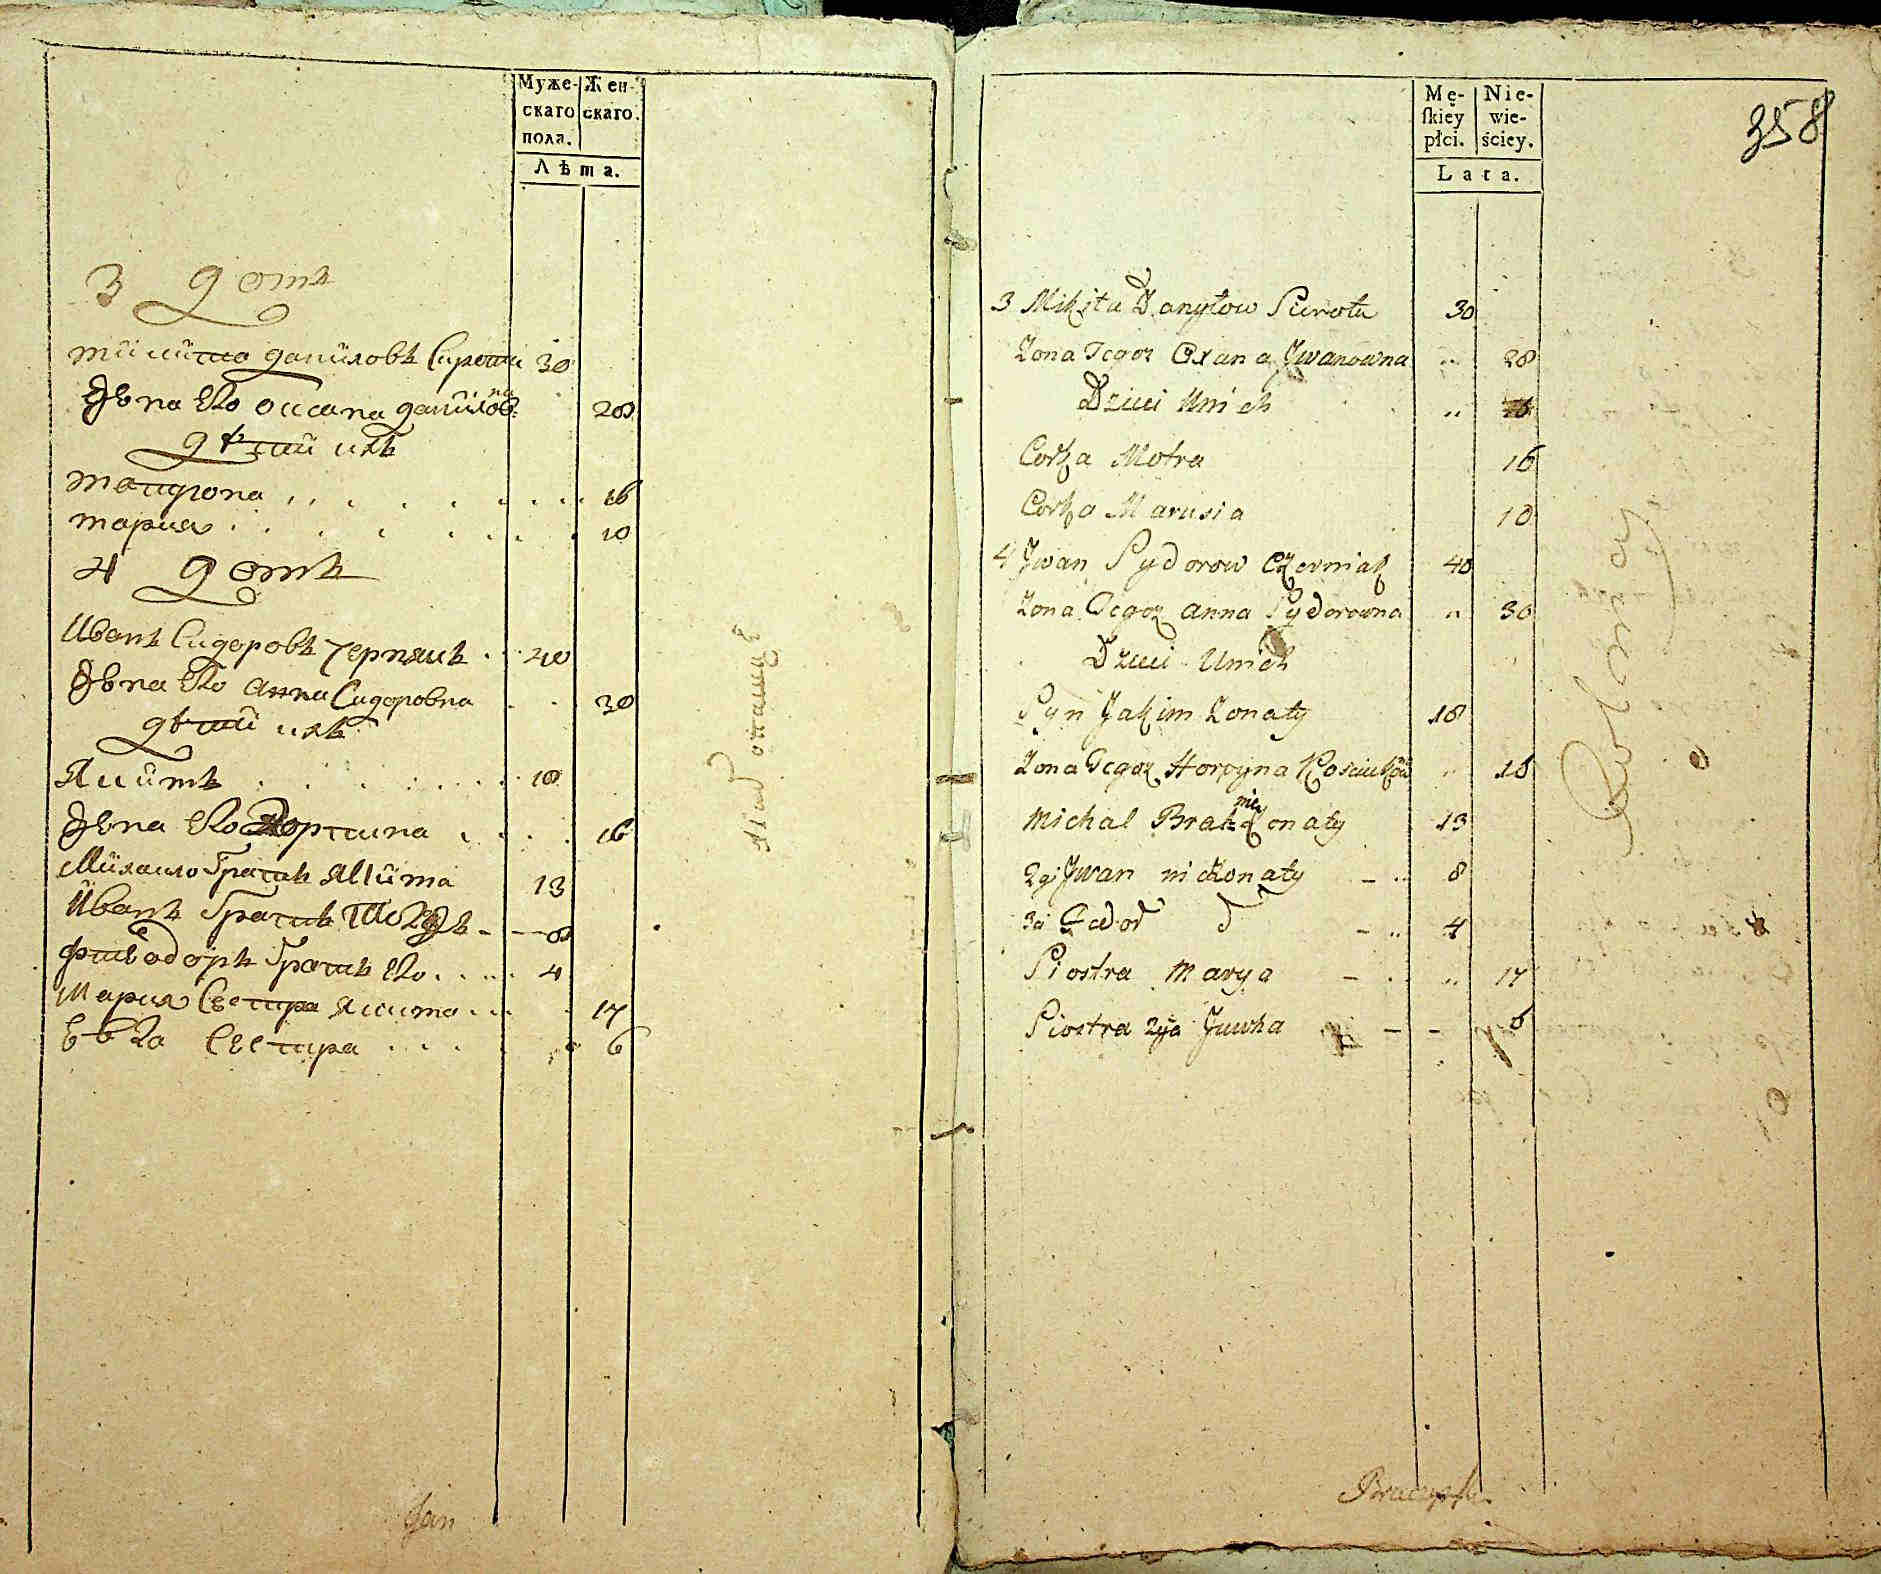 Муже-
скаго
пола.
Жен-
скаго.
Лѣта.
3 домъ
микита даниловъ Сирота 30
жена его оксана данилов. 28
дѣти ихъ
мотрона 16
мария 10
4 домъ
Иванъ Сидоровъ Чернякъ 40
жена его анна Сидоровна 30
дѣти ихъ
Якимъ 18
жена его Горпина 16
Михаило братъ Якима 13
Иванъ братъ 8
Fиодоръ братъ его 4
Мария Сестра якима 17
Евка Сестра 6
Jan
358
Mę-
ſkiey
płci.
Nie-
wie-
ściey.
Lata.
3 Mikita Danyłow Sierota 30
Żona Tegoż Oxana Jwanowna 28
Dzieci Unich
Corka Motra 16
Corka Marusia 10
4 Jwan Sydorow Czerniak 40
Żona Tegoż Anna Sydorowna 30
Dzieci Unich
Syn Jakim Żonaty 18
Żona Tegoż Horpyna 16
Michał Brat nie Żonaty 13
2gi Jwan nieżonaty 8
3ci Fedor d 4
Siostra Marya 17
Siostra 2ga Jewka 6